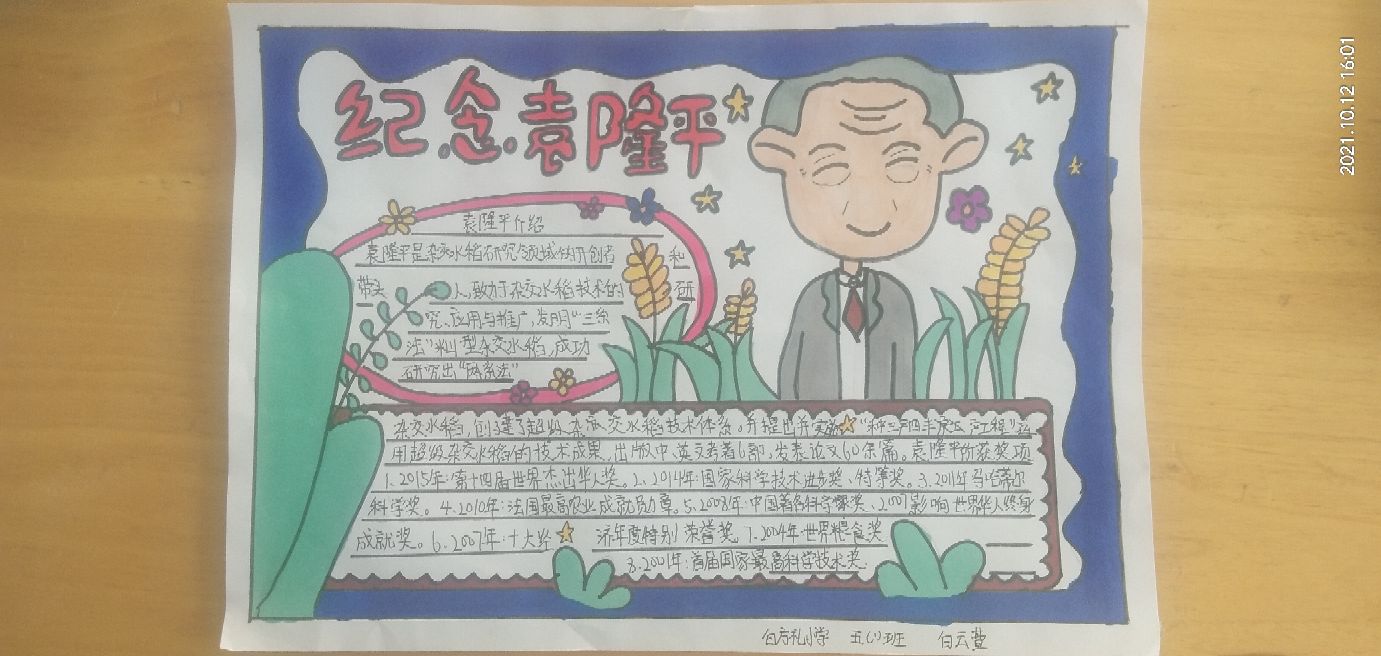 纪念袁隆平
袁隆平介绍
袁隆平是杂交水稻研究领域的开创者和
带头人,致力于杂交水稻技术的研
究、应用与推广,发明"三系
法"籼型杂交水稻,成功
研究出"两系法"
杂交水稻,创建了超级杂交水稻技术体系。并提出并实施"种三产四丰产工程"运
用超级杂交水稻的技术成果,出版中、英文专著6部,发表论文60余篇。袁隆平所获奖项
1.2015年:第十四届世界杰出华人奖。2.2014年:国家科学技术进步奖、特等奖。3.2011年马哈蒂尔
科学奖。4.2010年:法国最高农业成就勋章。5.2008年:中国著名科学家奖、2007影响世界华人终身
成就奖。6.2007年:十大 济年度特别荣誉奖 7.2004年:世界粮食奖
8.2001年:首届国家最高科学技术奖
白方礼小学 五(1)班 白云
2021.10.12 16:01